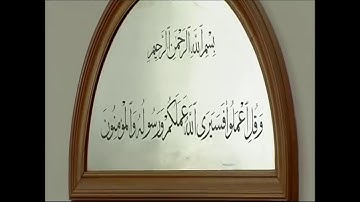 بِسْمِ ٱللَّهِ ٱلرَّحْمَٰنِ ٱلرَّحِيمِ
وَقُلِ ٱعْمَلُوا۟ فَسَيَرَى ٱللَّهُ عَمَلَكُمْ وَرَسُولُهُۥ وَٱلْمُؤْمِنُونَ